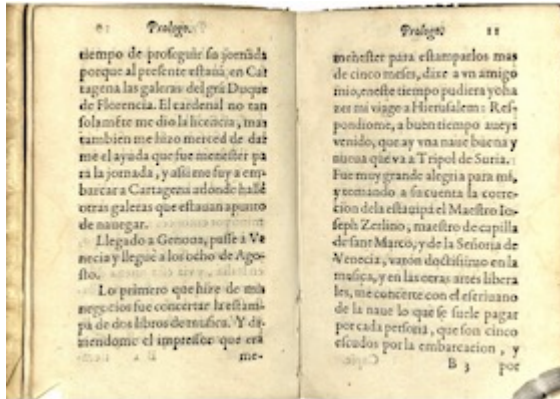 Prologo.
tiempo de proseguir su jornada
porque al presente estauã, en Car
tagena las galeras del grã Duque
de Florencia. El cardenal no tan
solamẽte me dio la licẽcia, mas
tambien me hizo merced de dar
me el ayuda que fue menester pa
ra la jornada, y assi me fuy a em-
barcar a Cartagena adonde hallè
otras galeras que estauan apunto
de nauegar.
Llegado a Genoua, passè a Ve
necia y lleguè a los ocho de Ago-
sto.
Lo primero que hize de mis
negocios fue concertar la estam-
pa de dos libros de musica. Y di-
ziendome el impressor que era
me-
Prologo. 11
menester para estamparlos mas
de cinco meses, dixe a vn amigo
mio, en este tiempo pudiera yo ha
zer mi viage a Hierusalem: Res-
pondiome, a buen tiempo aueys
venido, que ay vna naue buena y
nueua que va a Tripol de Suria.
Fue muy grande alegria para mi,
y tomando a su cuenta la corre-
cion dela estãpa el Maestro Io-
seph Zerlino, maestro de capilla
de sant Marco, y de la Señoria de
Venecia, varon doctissimo en la
musica, y en las otras artes libera
les, me concerte con el escriuano
de la naue lo que se suele pagar
por cada persona, que son cinco
escudos por la embarcacion, y
B 3 por